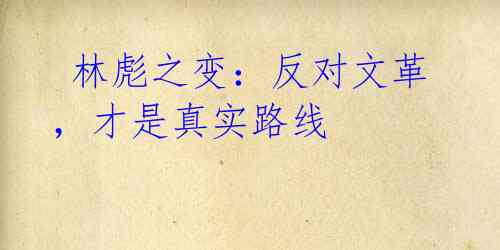 林彪之变：反对文革
，才是真实路线